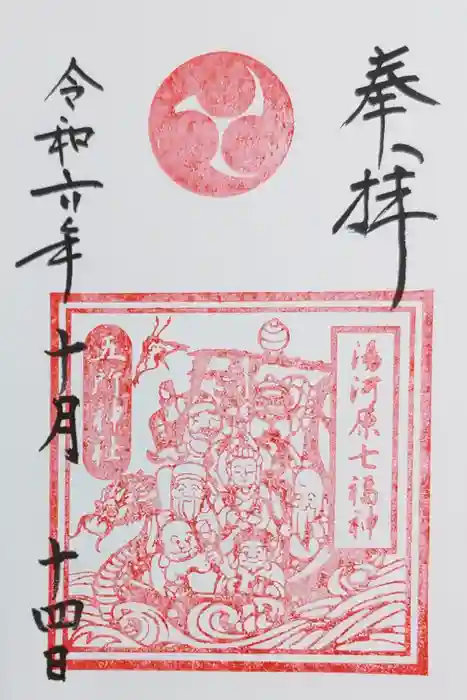 奉拝
湯河原七福神
五所神社
令和六年
十月
十四日